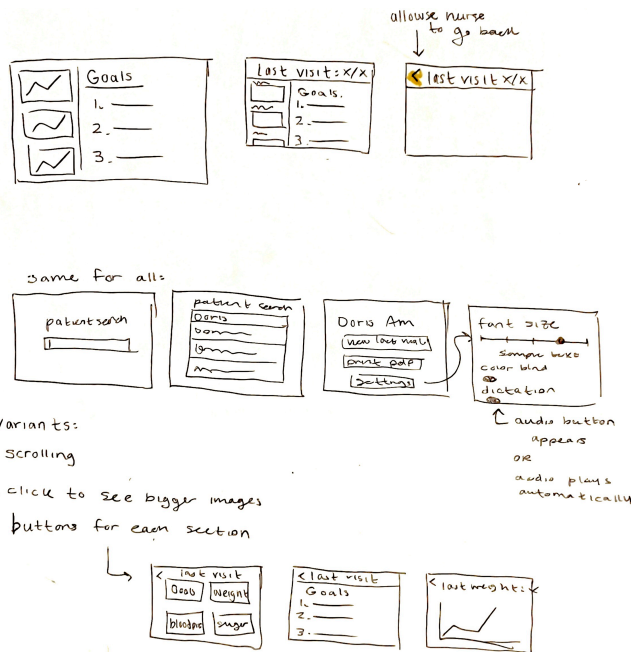 allowse nurse
to go back
Goals
1.
2.
3.
Last visit: x/x
Goals.
1.
2.
3.
< last visit x/x
same for all:
patient search
patient search
Doris
Doris Am
print pdf
Settings
font size
Sample text
color blind
dictation
audio button
appears
OR
audio plays
automatically
Variants:
scrolling
click to see bigger images
buttons for each section
< last visit
Goals
weight
sugar
< last visit
Goals
1.
2.
3.
< last weight: x